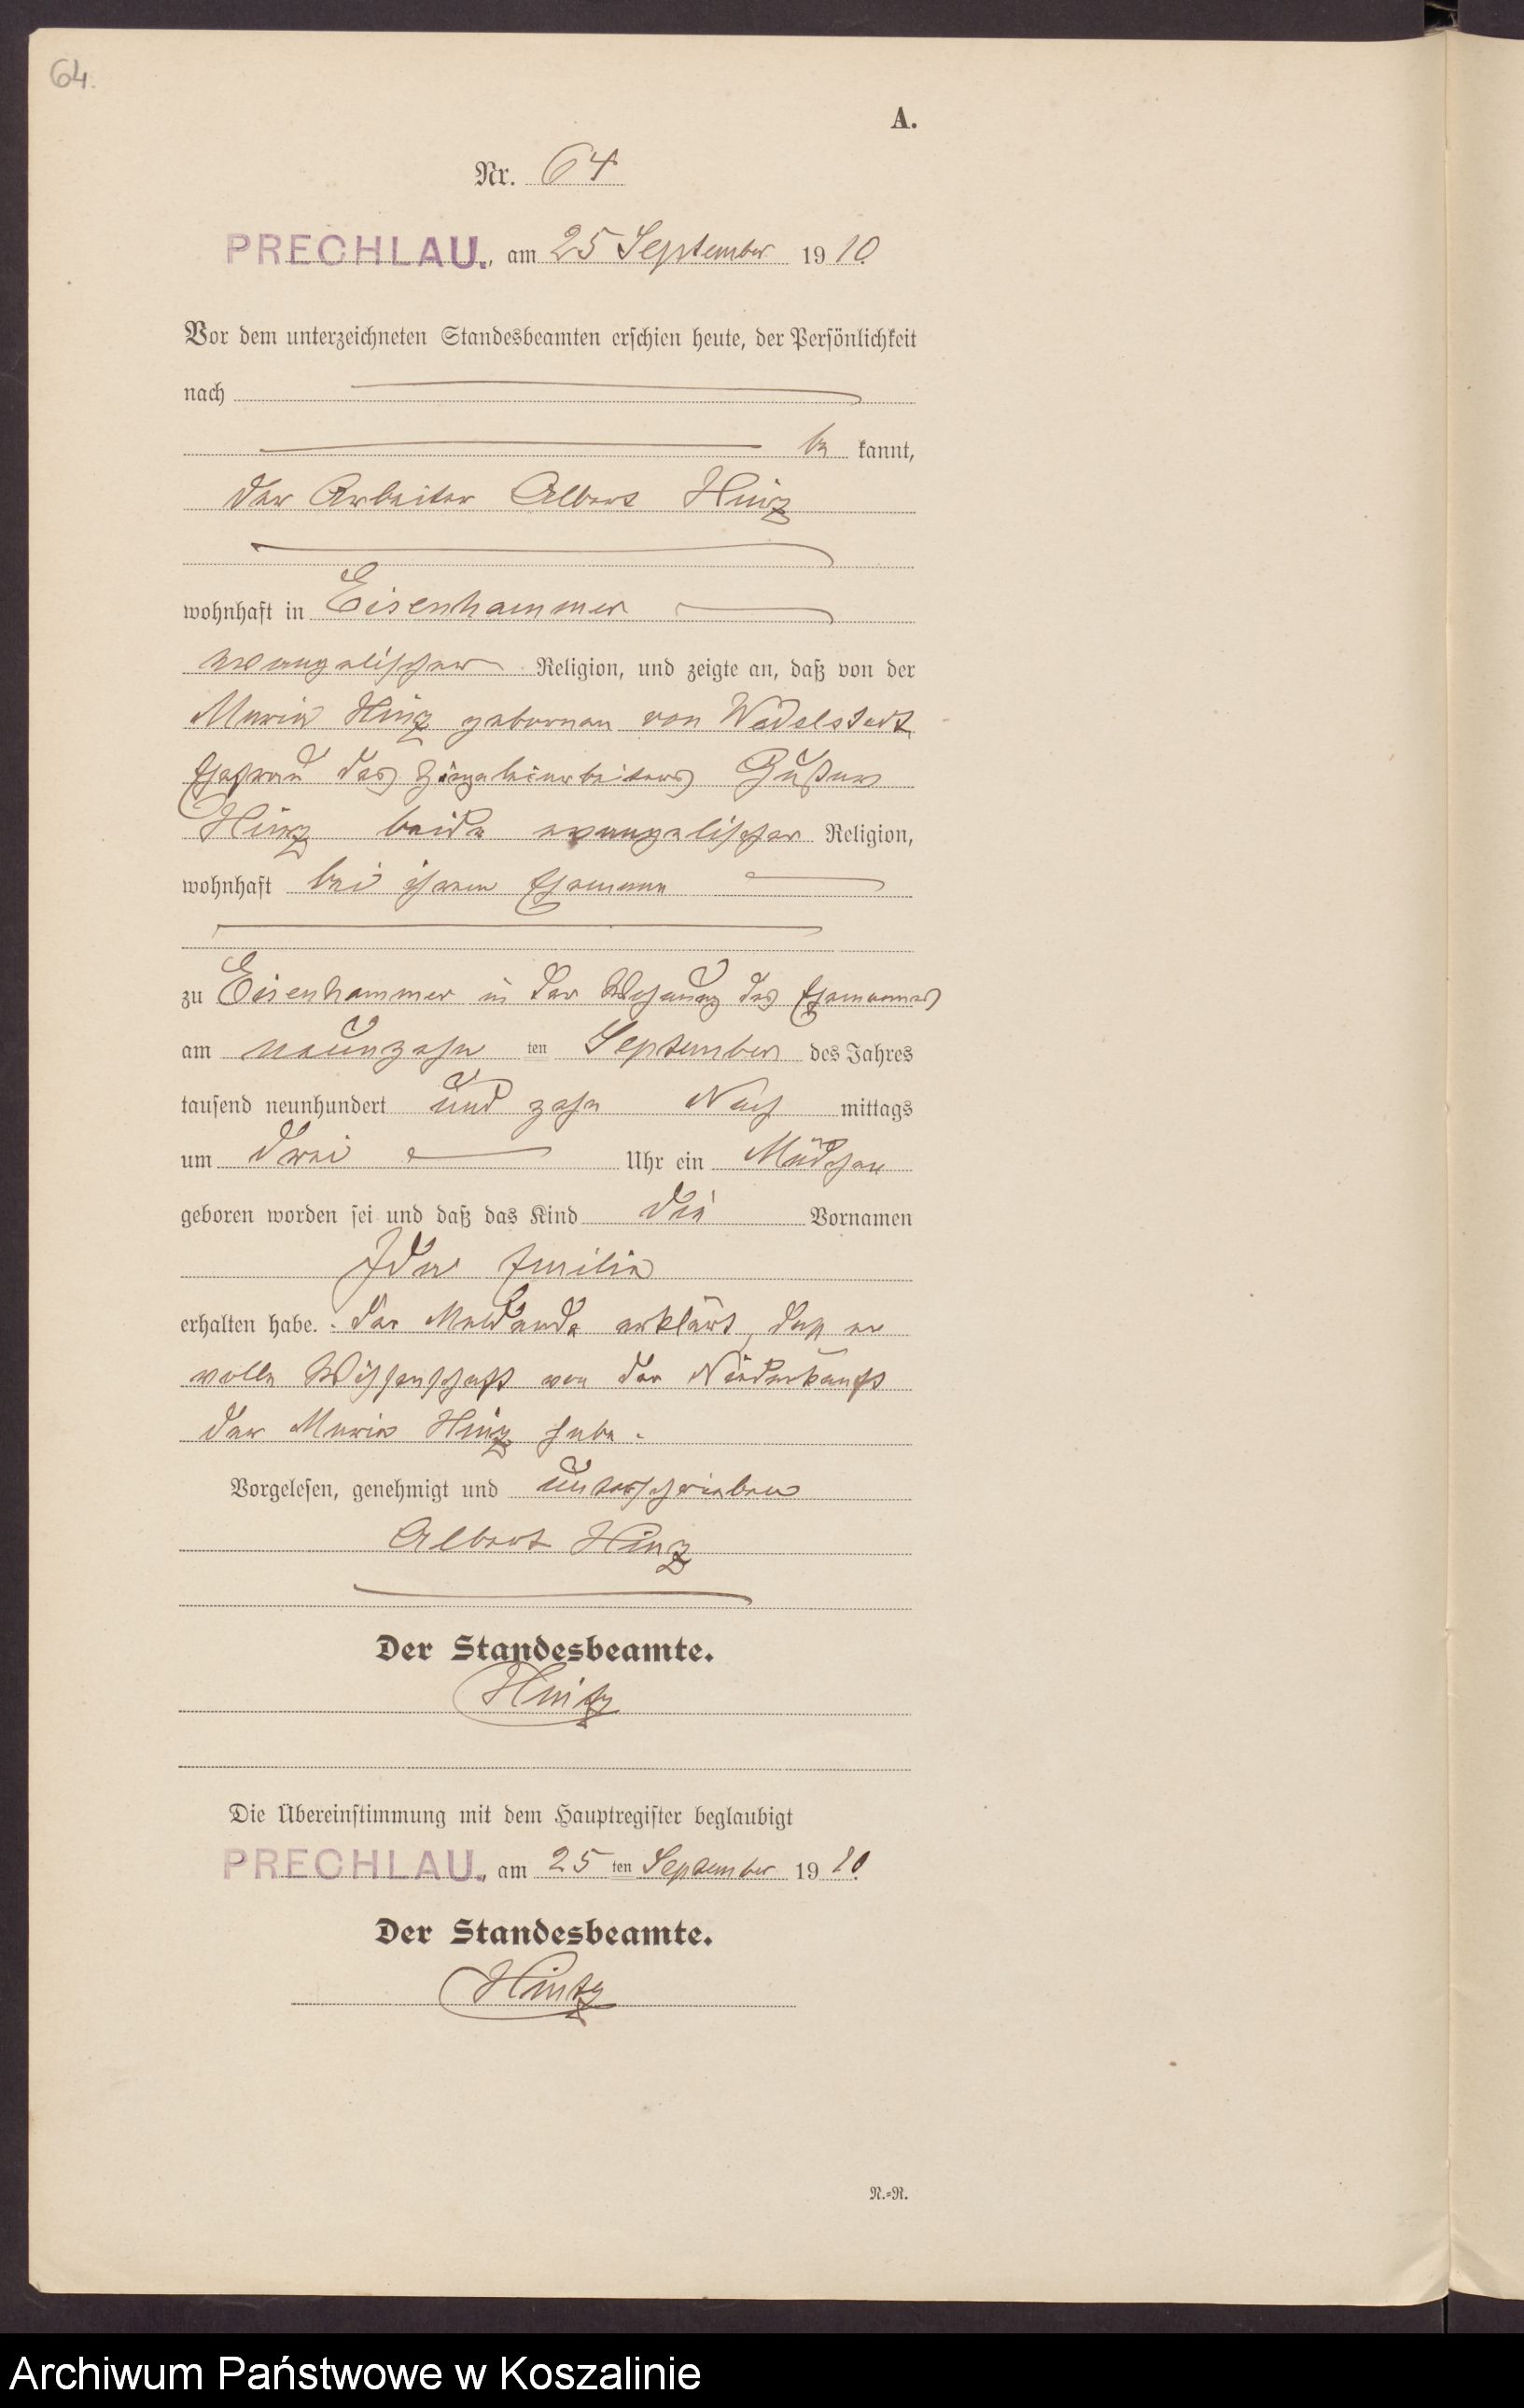 64.
A.
Nr. 64
PRECHLAU., am 25 September 1910.
Vor dem unterzeichneten Standesbeamten erschien heute, der Persönlichkeit
nach
be kannt,
der Arbeiter Albert Hinz
wohnhaft in Eisenhammer
evangelischer Religion, und zeigte an, daß von der
Maria Hinz geborenen von Wedelstedt
Ehefrau des Ziegeleiarbeiters Gustav
Hinz beide evangelischer Religion,
wohnhaft bei ihrem Ehemann
zu Eisenhammer in der Wohnung des Ehemannes
am neunzehn ten September des Jahres
tausend neunhundert und zehn Nach mittags
um drei Uhr ein Mädchen
geboren worden sei und daß das Kind die Vornamen
Ida Emilie
erhalten habe. Der Meldende erklärt, daß er
volle Wissenschaft von der Niederkunft
der Maria Hinz habe.
Vorgelesen, genehmigt und unterschrieben
Albert Hinz
Der Standesbeamte.
Hintz
Die Übereinstimmung mit dem Hauptregister beglaubigt
PRECHLAU., am 25 ten September 1910.
Der Standesbeamte.
Hintz
N.=R.
Archiwum Państwowe w Koszalinie